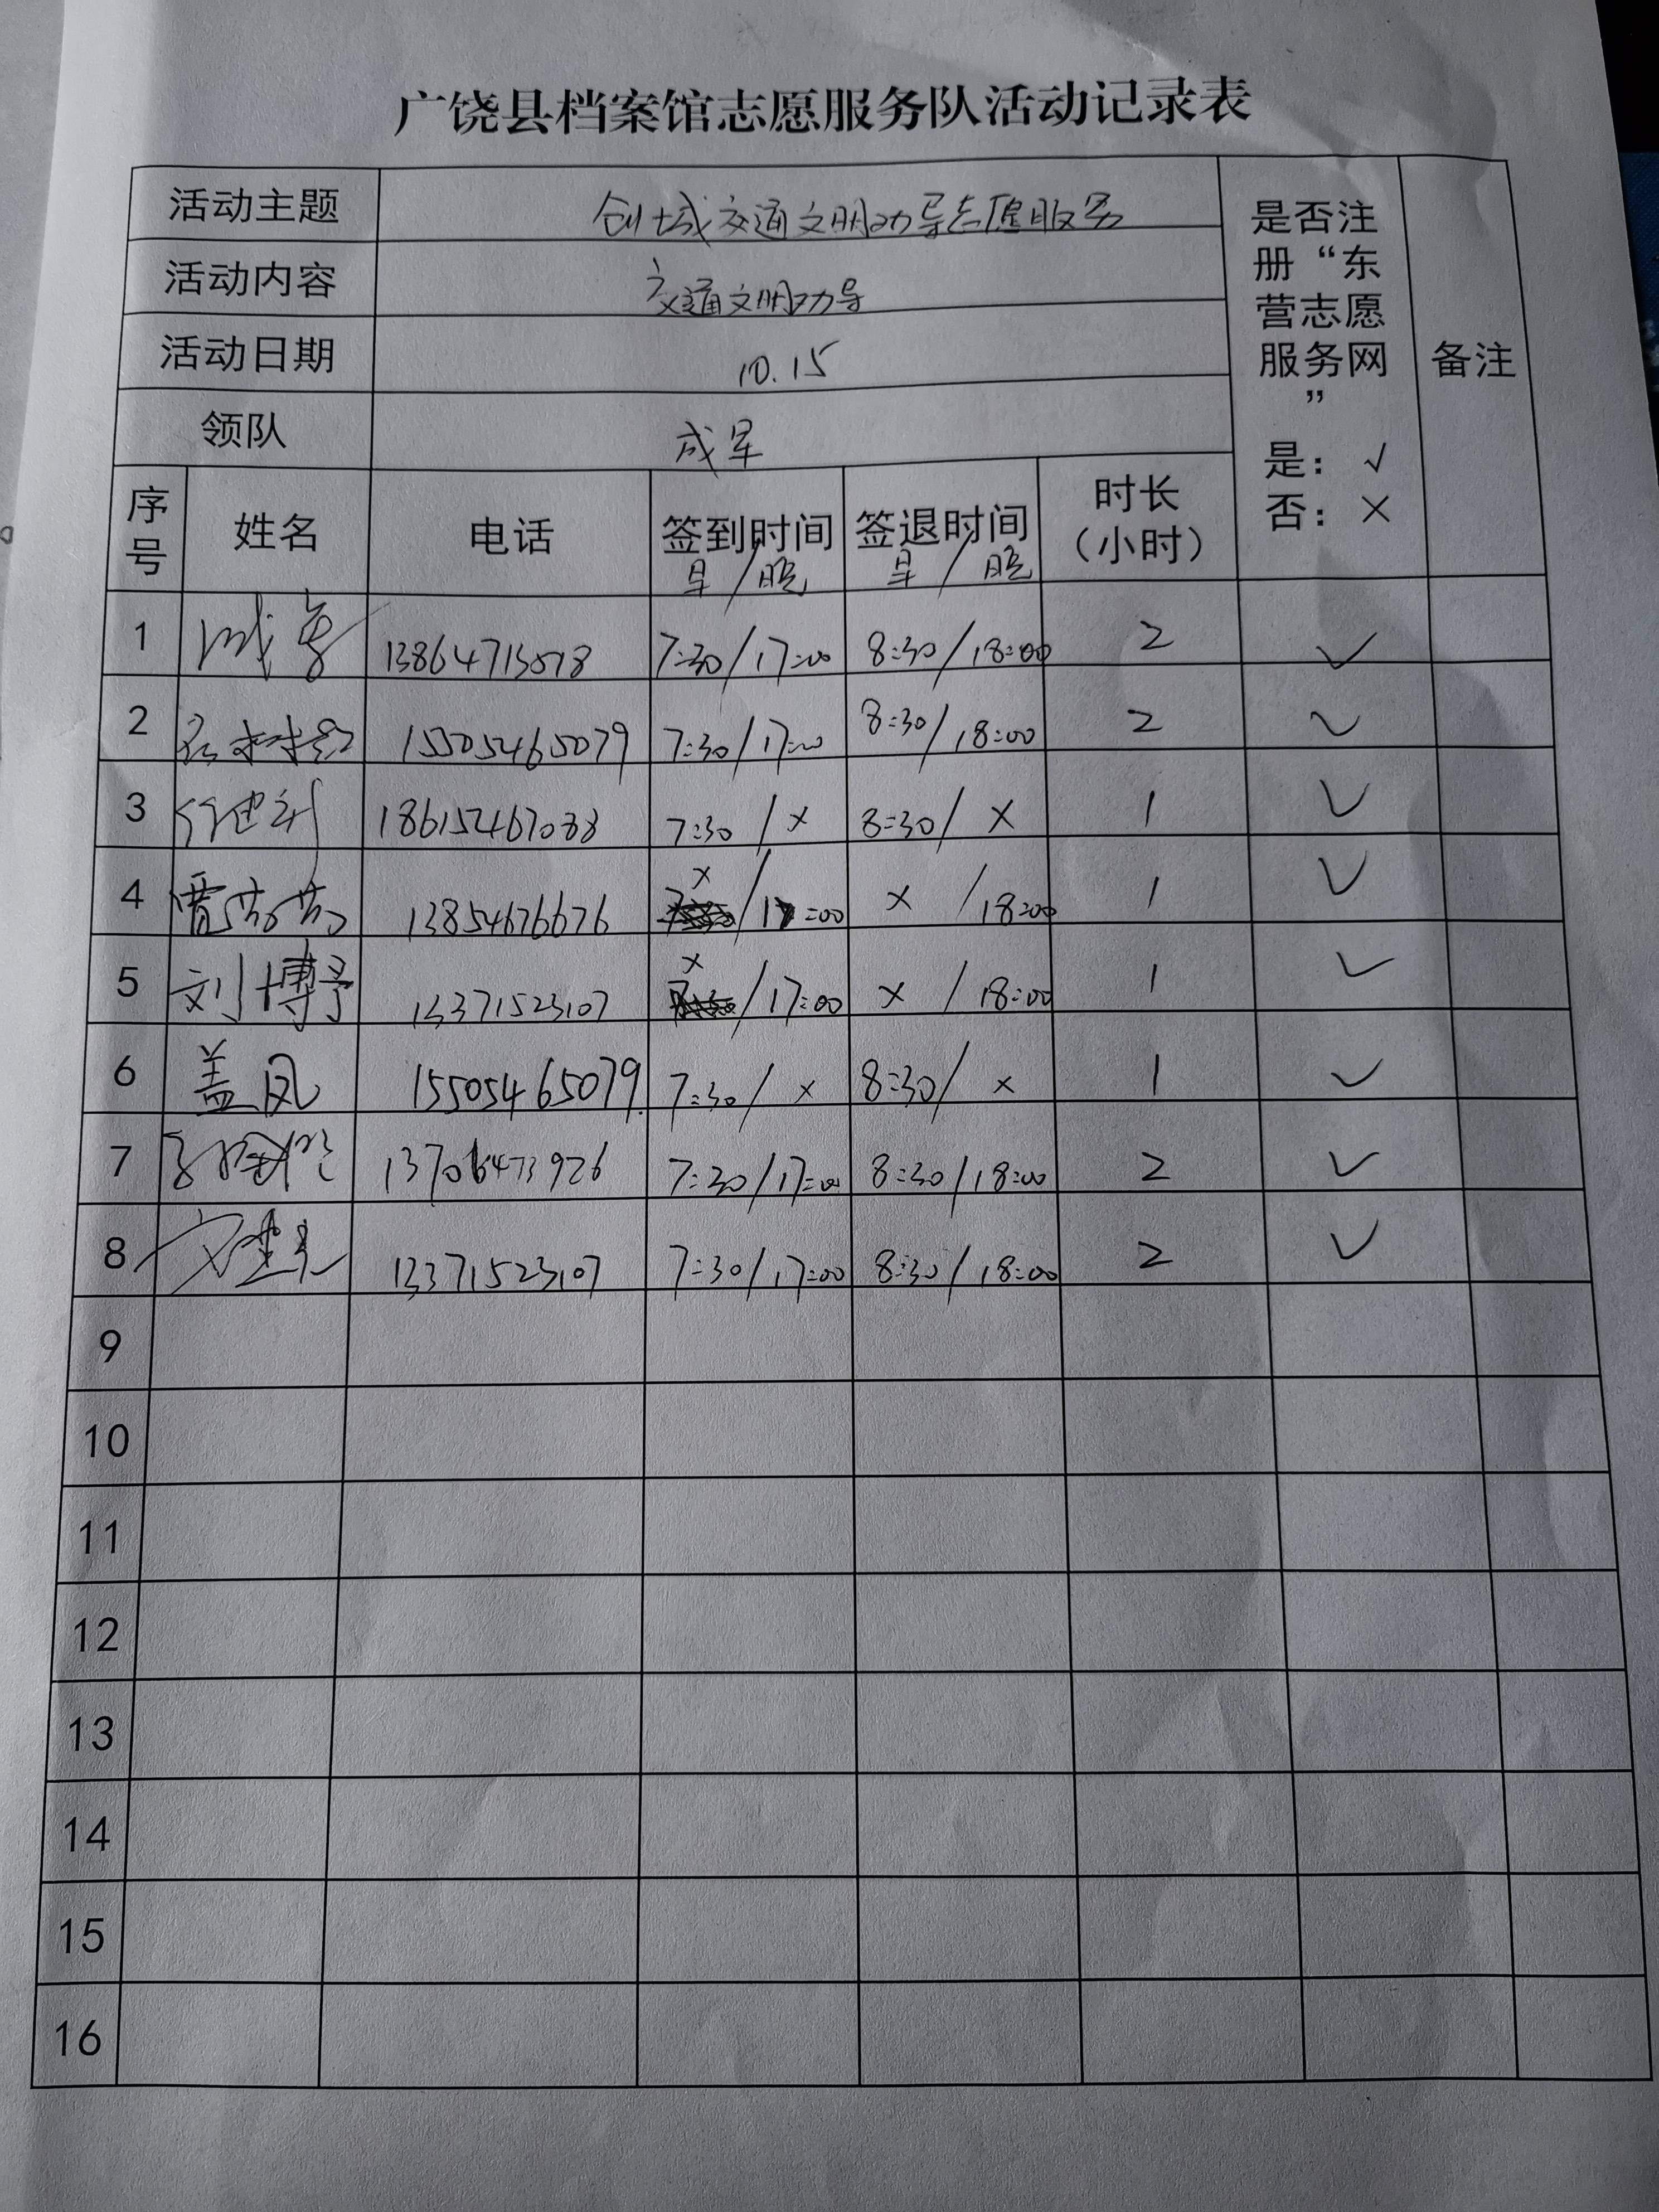 广饶县档案馆志愿服务队活动记录表
活动主题 创城交通文明劝导志愿服务
活动内容 交通文明劝导
活动日期 10.15
领队 成军
是否注册“东营志愿服务网”
是：√
否：×
备注
序号 姓名 电话 签到时间 早/晚 签退时间 早/晚 时长（小时）
1 13864713078 7:30/17:00 8:30/18:00 2 ✓
2 15505465079 7:30/17:00 8:30/18:00 2 ✓
3 7:30/× 8:30/× 1 ✓
4 13854676676 ×/17:00 ×/18:00 1 ✓
5 刘博予 13371523107 ×/17:00 ×/18:00 1 ✓
6 盖凤 15505465079 7:30/× 8:30/× 1 ✓
7 13706473926 7:30/17:00 8:30/18:00 2 ✓
8 13371523107 7:30/17:00 8:30/18:00 2 ✓
9
10
11
12
13
14
15
16